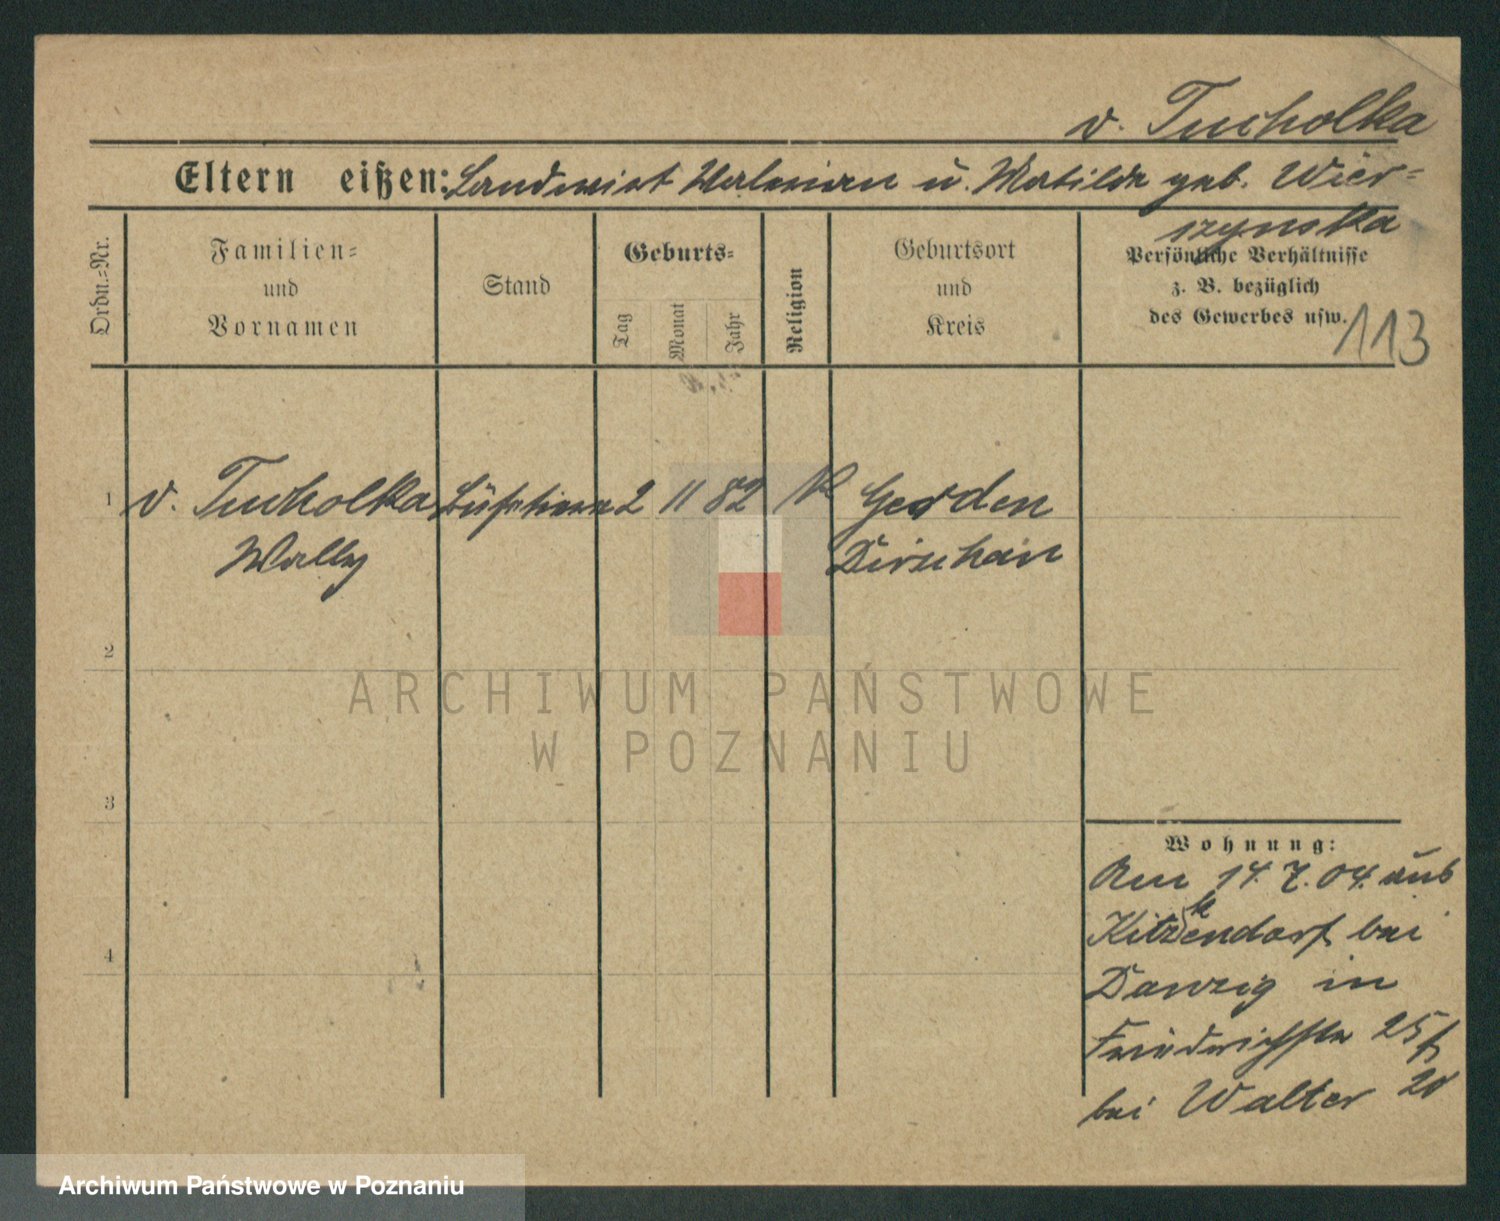 v. Tucholka
Eltern eißen: Landwirt Valerian u. Matilde geb. Wier=
szynska
Ordn.=Nr.
Familien=
und
Vornamen
Stand
Geburts=
Tag
Monat
Jahr
Religion
Geburtsort
und
Kreis
Persönliche Verhältnisse
z. B. bezüglich
des Gewerbes usw.
113
1 v. Tucholka 2 11 82 K Gerden
Wally Dirschau
2
3
4
Wohnung:
Am 14. 7. 04. aus
Danzig in
Friedrichstr 25 f
bei Walter
ARCHIWUM PAŃSTWOWE
W POZNANIU
Archiwum Państwowe w Poznaniu